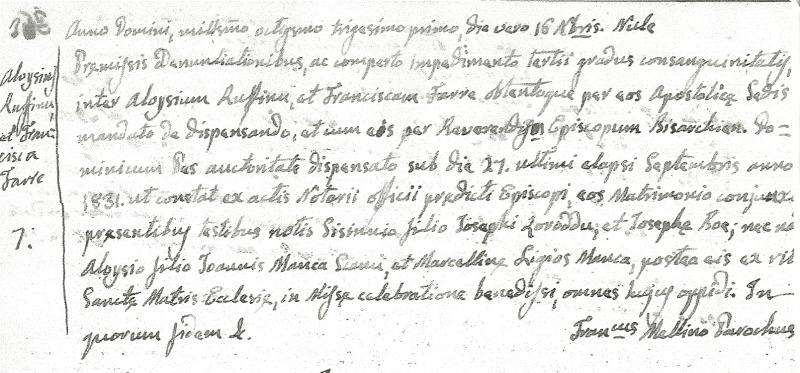 Anno Domini, millesmo octigsmo trigesimo primo, die vero 16 Nbris. Nulle
Premissis Denuntiationibus, ac comperto impedimento tertii gradus consanguinitatis,
inter Aloysium Ruffinu, et Franciscam Farre obtentoque per eos Apostolicę Sedis
mandato de dispensando, et cum eis per Reverendissm Episcopum Bisarchien. Do-
minicum Pes auctoritate dispensato sub die 27. ultimi elapsi Septembris anno
1831. ut constat ex actis Notarii officii predicti Episcopi, eos Matrimonio conjunx.
presentibus testibus notis Sisinnio filio Iosephi Loroddu, et Iosepha Roe; nec nò
Aloysio filio Ioannis Manca Scanu, et Marcellinę Ligios Manca, postea eis ex ritu
Sanctę Matris Ecclesię, in Missę celebratione benedixi, omnes hujus oppidi. In
quorum fidem &.
Francus Mellino Parochus
Aloysius
Ruffinu,
et Fran-
cisca
Farre
7.